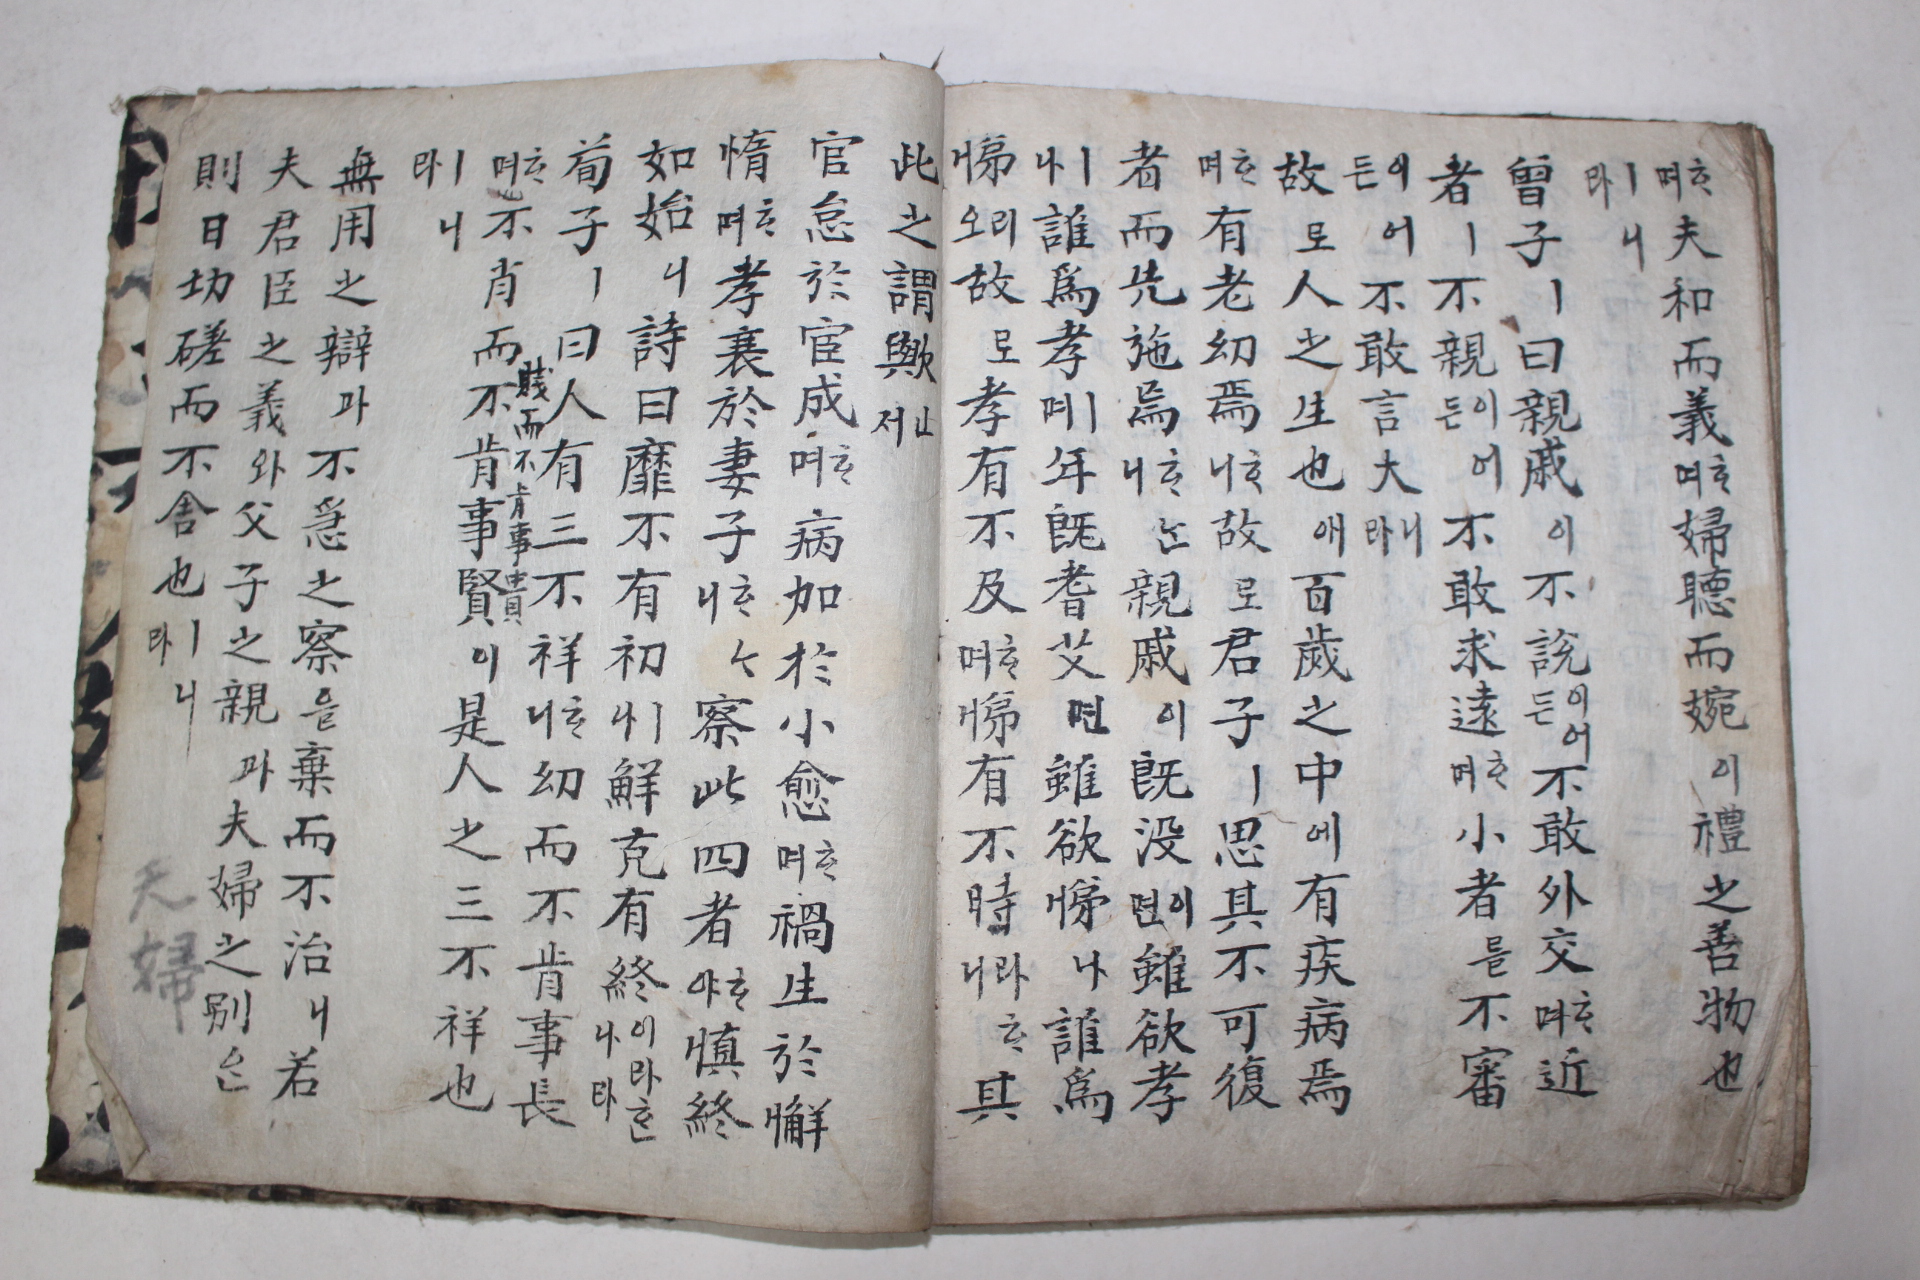 ᄒᆞ며夫和而義ᄒᆞ며婦聽而婉이禮之善物也
ㅣ니라
曾子ㅣ曰親戚이不說이어든不敢外交ᄒᆞ며近
者ㅣ不親이어든不敢求遠ᄒᆞ며小者를不審
이어든不敢言大니라
故로人之生也애百歲之中에有疾病焉
ᄒᆞ며有老幼焉ᄒᆞ니故로君子ㅣ思其不可復
者而先施焉ᄒᆞᄂᆞ니親戚이既没이면雖欲孝
ㅣ나誰爲孝ㅣ며年既耆艾면雖欲悌나誰爲
悌리오故로孝有不及ᄒᆞ며悌有不時라ᄒᆞ니其
此之謂歟ㄴ저
官怠於宦成ᄒᆞ며病加於小愈ᄒᆞ며禍生於懈
惰ᄒᆞ며孝衰於妻子ᄒᆞᄂᆞ니察此四者ᄒᆞ야愼終
如始니詩曰靡不有初ㅣ나鮮克有終이라ᄒᆞ니라
荀子ㅣ曰人有三不祥ᄒᆞ니幼而不肯事長
賤而不肯事貴
ᄒᆞ며不肖而不肯事賢이是人之三不祥也
ㅣ니라
無用之辯과不急之察을棄而不治니若
夫君臣之義와父子之親과夫婦之別은
則日切磋而不舍也ㅣ니라